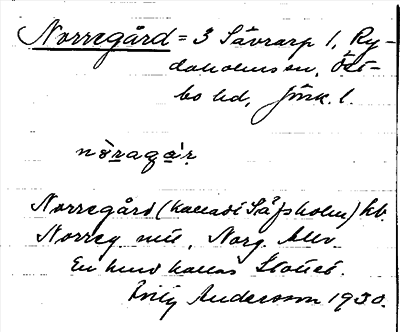 Norregård = 3 Såvrarp 1, Ry-
daholms sn, Öst-
bo hd, Jönk. l.
nòragár
Norregård (kallades Säfsholm) hb.
Norreg. mu, Norg. allm
En hund kallas Slottet.
Emily Andersson 1930.